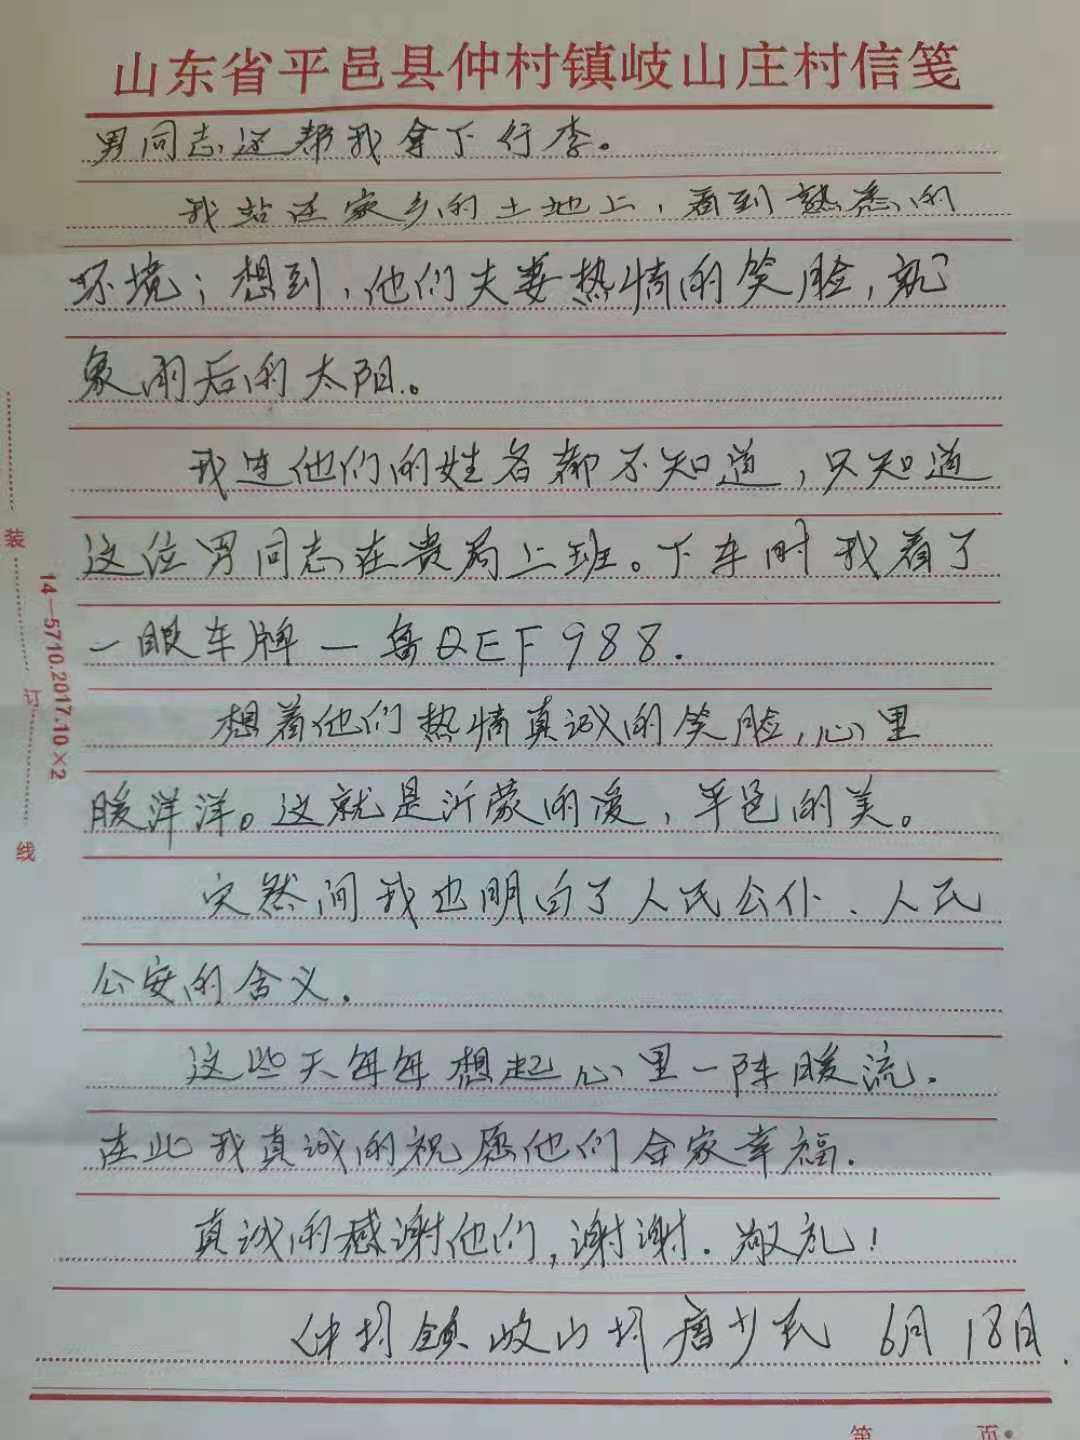 山东省平邑县仲村镇岐山庄村信笺
男同志还帮我拿下行李。
我站在家乡的土地上，看到熟悉的
环境；想到，他们夫妻热情的笑脸，就
象雨后的太阳。
我连他们的姓名都不知道，只知道
这位男同志在贵局上班。下车时我看了
一眼车牌—鲁QEF988.
想着他们热情真诚的笑脸，心里
暖洋洋。这就是沂蒙的爱，平邑的美。
突然间我也明白了人民公仆、人民
公安的含义.
这些天每每想起心里一阵暖流.
在此我真诚的祝愿他们全家幸福.
真诚的感谢他们，谢谢.敬礼！
仲村镇岐山村唐少民 6月18日.
装
订
线
14—5710.2017.10×2
第 页